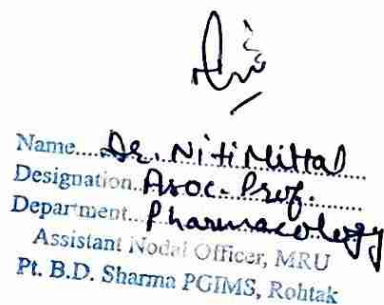 Name....Dr. Niti Mittal
Designation.Asoc. Prof.
Department..Pharmacology
Assistant Nodal Officer, MRU
Pt. B.D. Sharma PGIMS, Rohtak